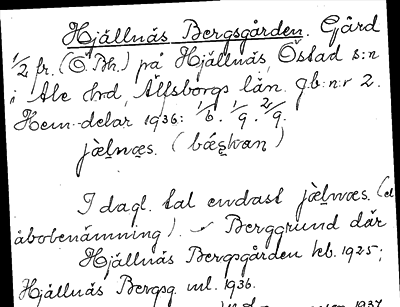 Hjällnäs Bergsgården. Gård
1/2 fr. (Ö. Bh.) på Hjällnäs, Östad s:n
i Ale hrd, Älfsborgs län. gb: n:r 2.
Hem.delar 1936: 1/6. 1/9. 2/9.
jæ̀lnæs. (bǽs̨van)
I dagl. tal endast jæ̀lnæs. (el
åbobenämning). Berggrund där
Hjällnäs Bergsgården keb. 1925;
Hjällnäs Bergsg. ml. 1936.
1937